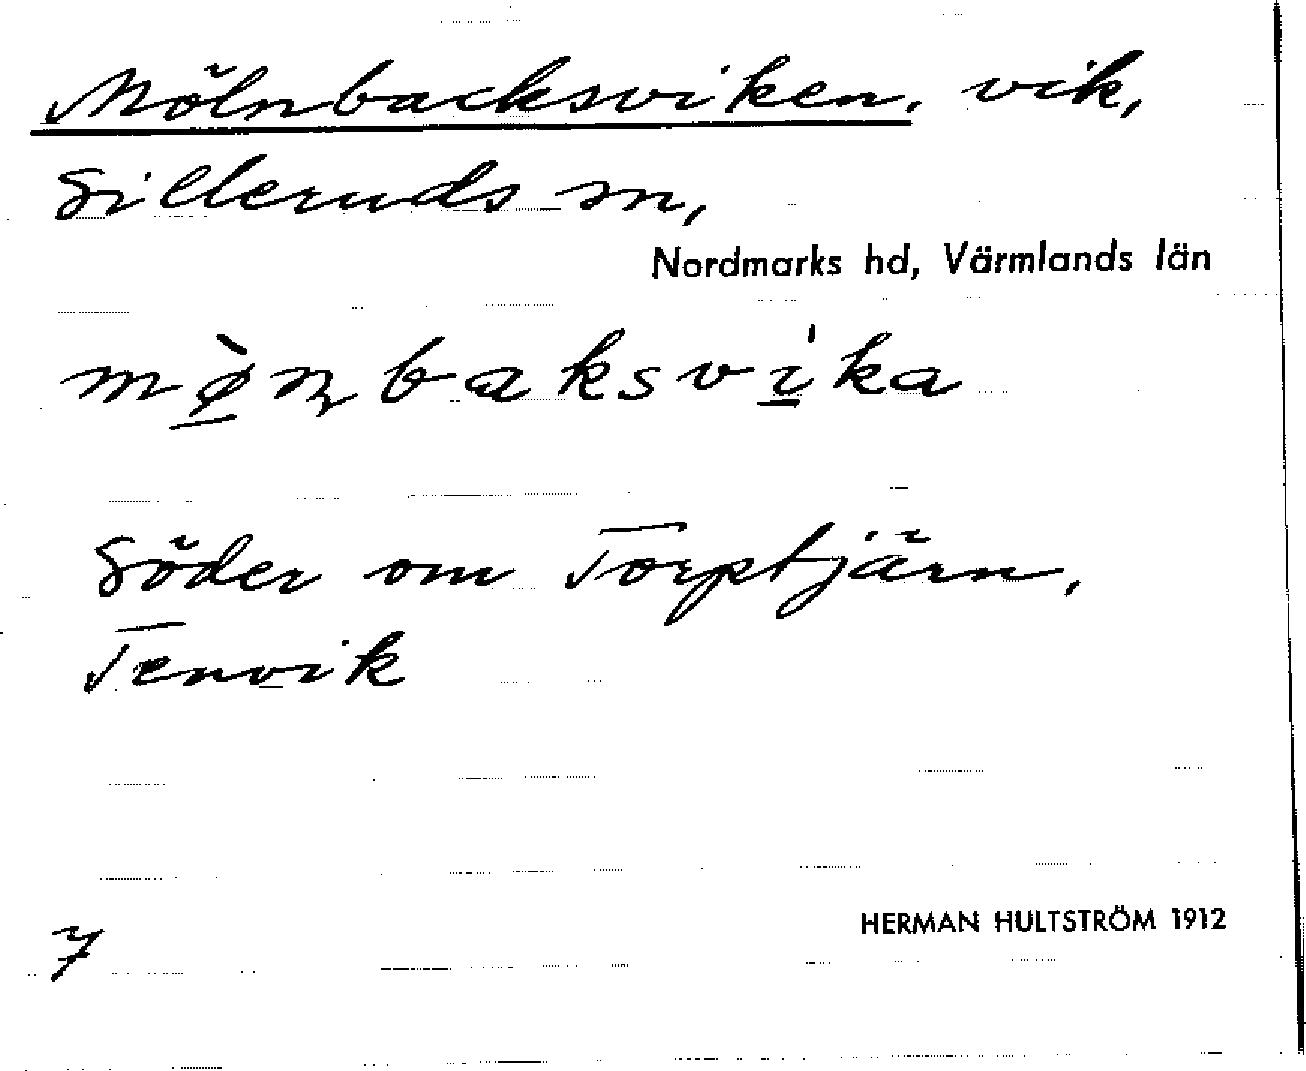 Mölnbacksviken, vik,
Silleruds sn,
Nordmarks hd, Värmlands län
mø̠̀ɳbaksvi̠ka
Söder om Torptjärn,
Tenvik
7
HERMAN HULTSTRÖM 1912